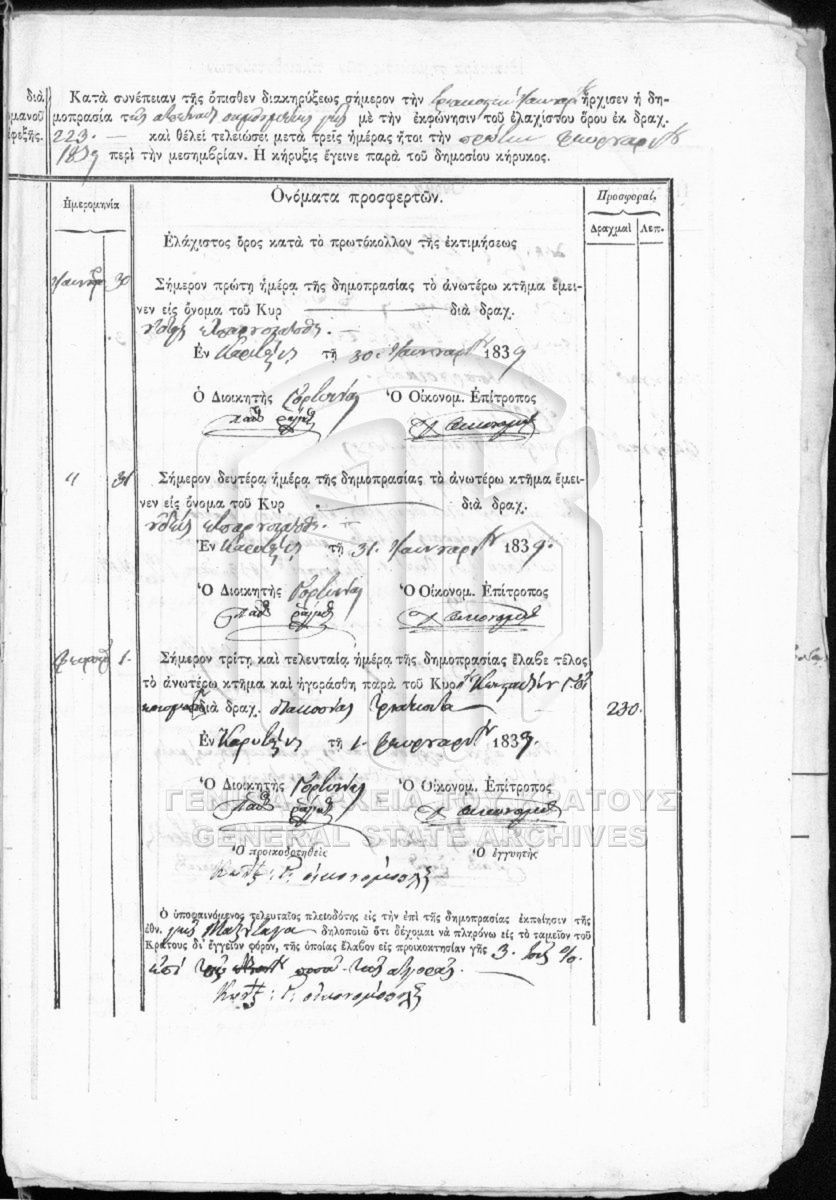 διὰ
μανοῦ
φεξῆς.
Κατὰ συνέπειαν τῆς ὄπισθεν διακηρύξεως σήμερον τὴν τριακοστὴν Ἰανουαρίου ἤρχισεν ἡ δη-
μοπρασία τῆς γῆς μὲ τὴν ἐκφώνησιν τοῦ ἐλαχίστου ὅρου ἐκ δραχ.
223. — καὶ θέλει τελειώσει μετὰ τρεῖς ἡμέρας ἤτοι τὴν πρώτην Φεβρουαρίου
1839 περὶ τὴν μεσημβρίαν. Ἡ κήρυξις ἔγεινε παρὰ τοῦ δημοσίου κήρυκος.
Ἡμερομηνία
Ὀνόματα προσφερτῶν.
Προσφοραί.
Δραχμαὶ Λεπ.
Ἐλάχιστος ὅρος κατὰ τὸ πρωτόκολλον τῆς ἐκτιμήσεως
Ἰανουαρ 30
Σήμερον πρώτη ἡμέρα τῆς δημοπρασίας τὸ ἀνωτέρω κτῆμα ἔμει-
νεν εἰς ὄνομα τοῦ Κυρ — διὰ δραχ.
οὐδεὶς ἐπαρουσιάσθη. —
Ἐν τῇ 30. Ἰανουαρίου 1839
Ὁ Διοικητὴς Γορτυνίας Ὁ Οἰκονομ. Ἐπίτροπος
" 31
Σήμερον δευτέρα ἡμέρα τῆς δημοπρασίας τὸ ἀνωτέρω κτῆμα ἔμει-
νεν εἰς ὄνομα τοῦ Κυρ — διὰ δραχ.
οὐδεὶς ἐπαρουσιάσθη. —
Ἐν τῇ 31. Ἰανουαρίου 1839.
Ὁ Διοικητὴς Γορτυνίας Ὁ Οἰκονομ. Ἐπίτροπος
Φεβρουαρ 1.
Σήμερον τρίτη καὶ τελευταία ἡμέρα τῆς δημοπρασίας ἔλαβε τέλος
τὸ ἀνωτέρω κτῆμα καὶ ἠγοράσθη παρὰ τοῦ Κυρ
διὰ δραχ. διακοσίας τριάκοντα 230.
Ἐν τῇ 1. Φεβρουαρίου 1839.
Ὁ Διοικητὴς Γορτυνίας Ὁ Οἰκονομ. Ἐπίτροπος
ΓΕΝΙΚΑ ΑΡΧΕΙΑ ΤΟΥ ΚΡΑΤΟΥΣ
GENERAL STATE ARCHIVES
Ὁ προικοδοτηθεὶς Ὁ ἐγγυητὴς
Κωστ: Γ. οἰκονομόπουλος
Ὁ ὑποφαινόμενος τελευταῖος πλειοδότης εἰς τὴν ἐπὶ τῆς δημοπρασίας ἐκποίησιν τῆς
ἐθν. γῆς δηλοποιῶ ὅτι δέχομαι νὰ πληρόνω εἰς τὸ ταμεῖον τοῦ
Κράτους δι' ἔγγειον φόρον, τῆς ὁποίας ἔλαβον εἰς προικοκτησίαν γῆς 3. τοῖς %.
ἐπὶ τῆς ἀγορᾶς. —
Κωστ: Γ. οἰκονομόπουλος